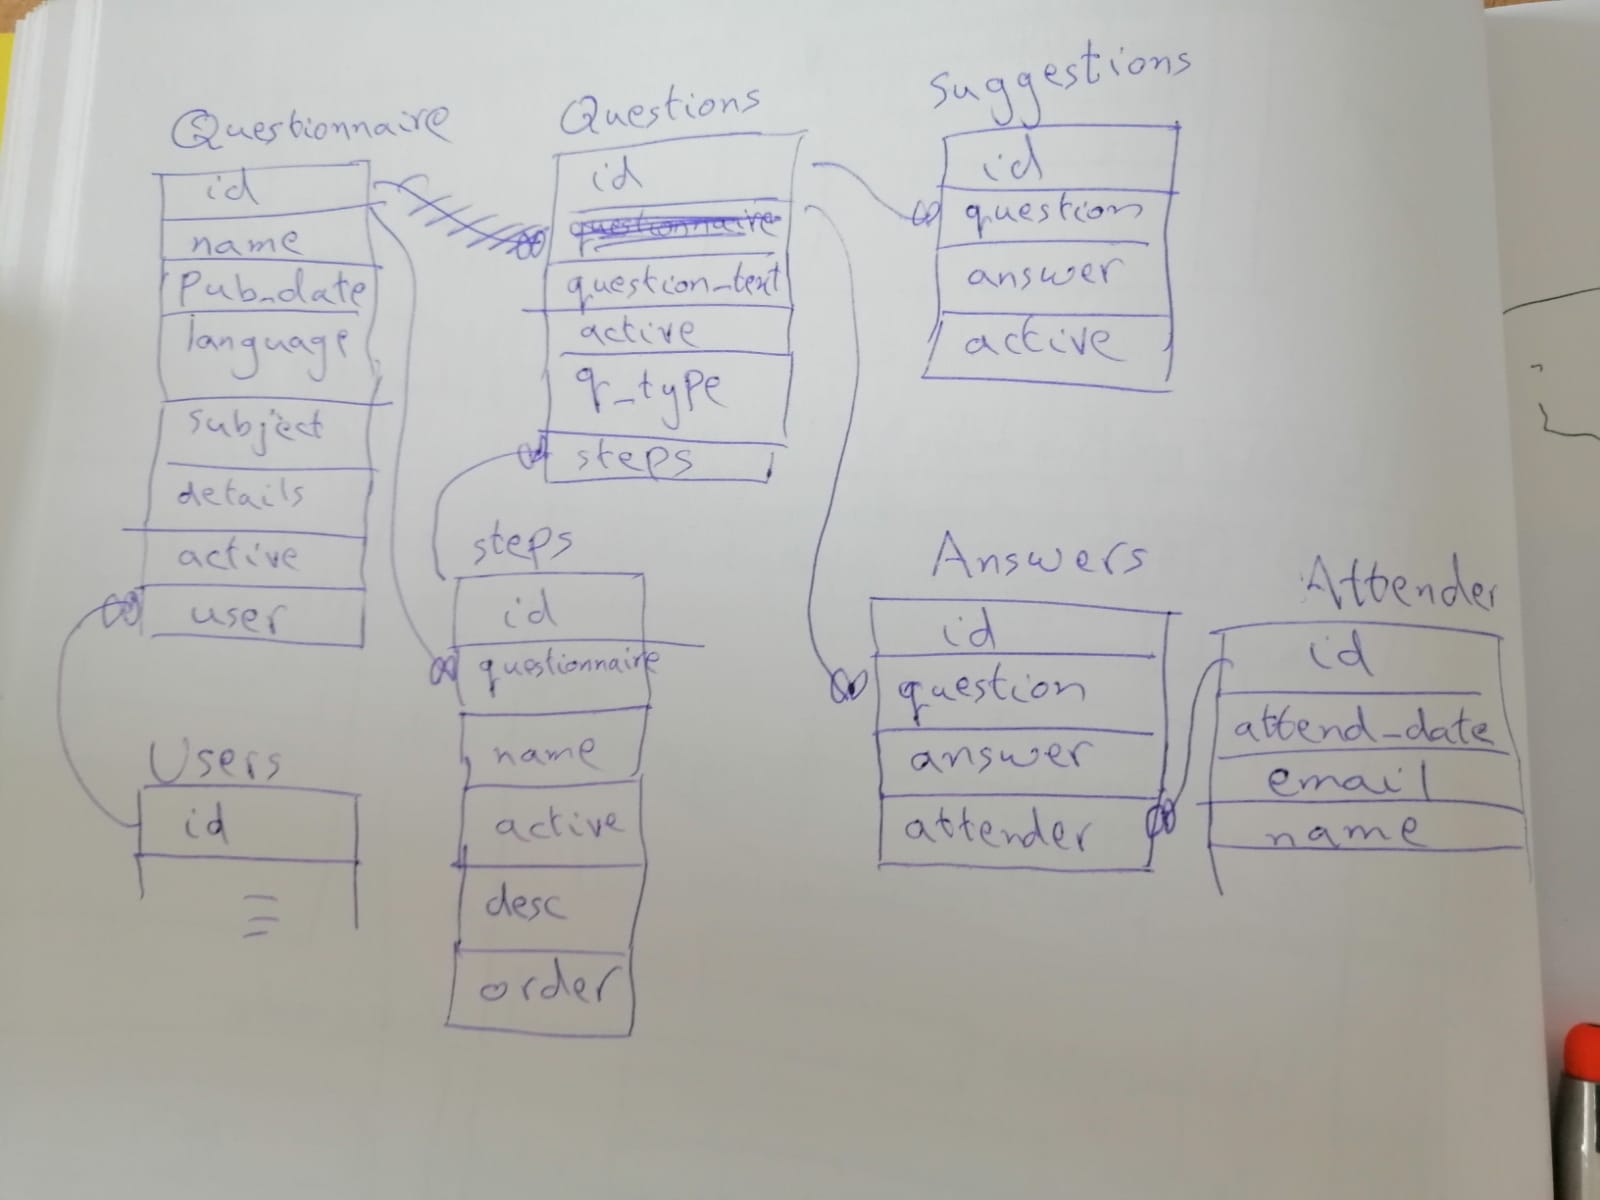 Questionnaire
id
name
Pub_date
language
subject
details
active
user
Questions
id
questionnaire
question_text
active
q_type
steps
Suggestions
id
question
answer
active
steps
id
questionnaire
name
active
desc
order
Users
id
Answers
id
question
answer
attender
Attender
id
attend_date
email
name